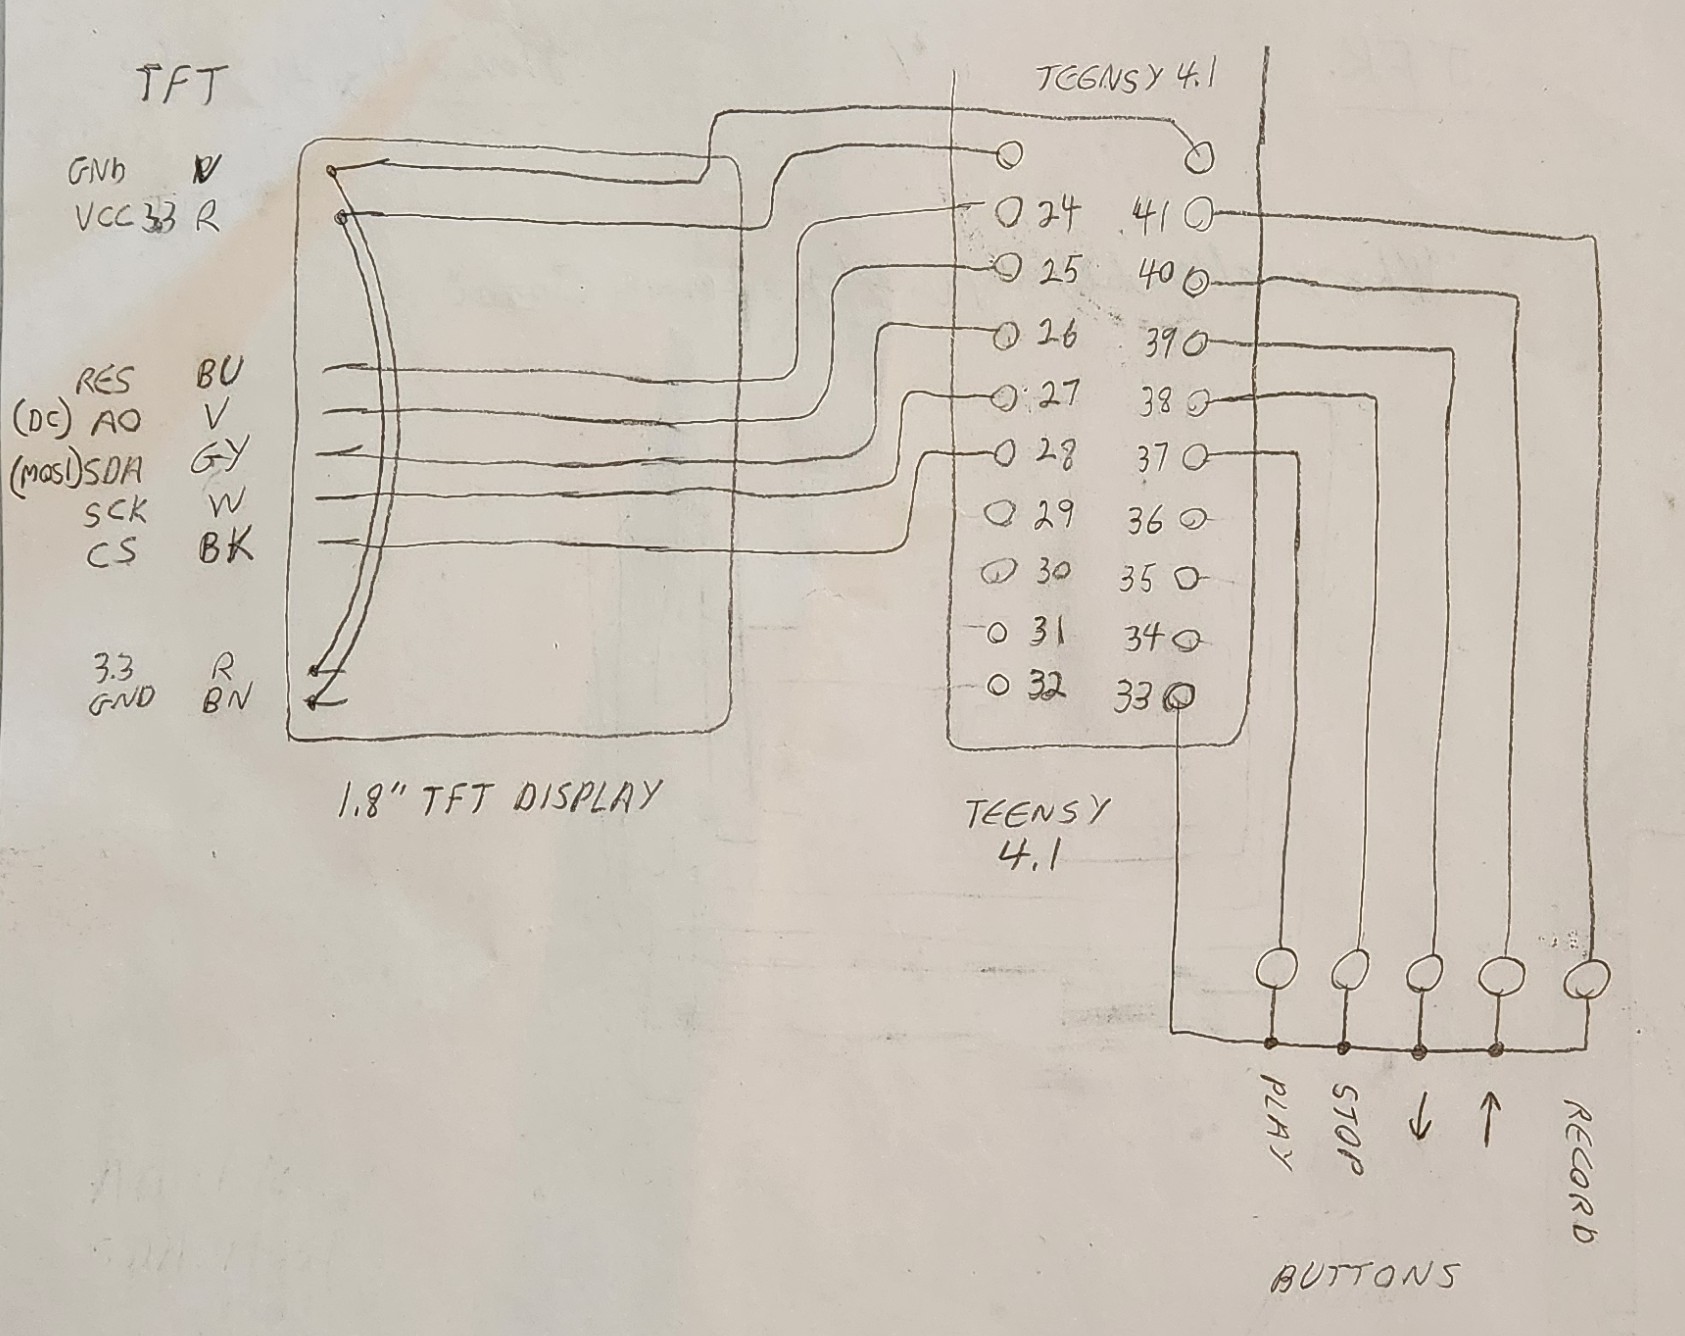 TFT
TEENSY 4.1
GND
VCC 3.3 R
24 41
25 40
26 39
27 38
28 37
29 36
30 35
31 34
32 33
RES BU
(DC) A0 V
(MOSI) SDA GY
SCK W
CS BK
3.3 R
GND BN
1.8" TFT DISPLAY
TEENSY
4.1
PLAY
STOP
↓
↑
RECORD
BUTTONS